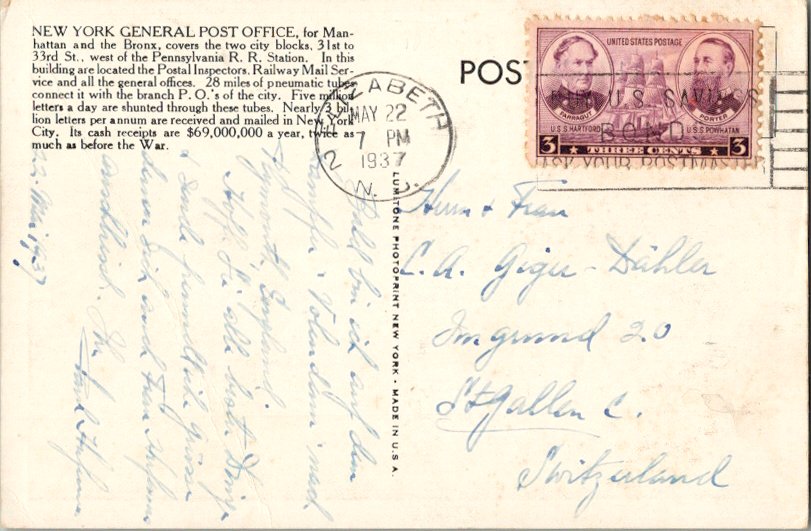 NEW YORK GENERAL POST OFFICE, for Man-
hattan and the Bronx, covers the two city blocks, 31st to
33rd St., west of the Pennsylvania R. R. Station. In this
building are located the Postal Inspectors, Railway Mail Ser-
vice and all the general offices. 28 miles of pneumatic tubes
connect it with the branch P. O.'s of the city. Five million
letters a day are shunted through these tubes. Nearly 3 bil-
lion letters per annum are received and mailed in New York
City. Its cash receipts are $69,000,000 a year, twice as
much as before the War.
22. Mai 1937
Bald bin ich auf dem
Dampfer Volendam nach
Plymouth, England.
Hoffe Sie alle
POST
ELIZABETH
MAY 22
7 PM
1937
2 N. J.
UNITED STATES POSTAGE
FARRAGUT
PORTER
U.S.S HARTFORD
U.S.S POWHATAN
3 THREE CENTS 3
U.S. SAVINGS
BOND
ASK YOUR POSTMASTER
LUMITONE PHOTOPRINT NEW YORK · MADE IN U.S.A.
Herrn & Frau
C. A. Giger-Dähler
Imgrund 20
St Gallen C.
Switzerland